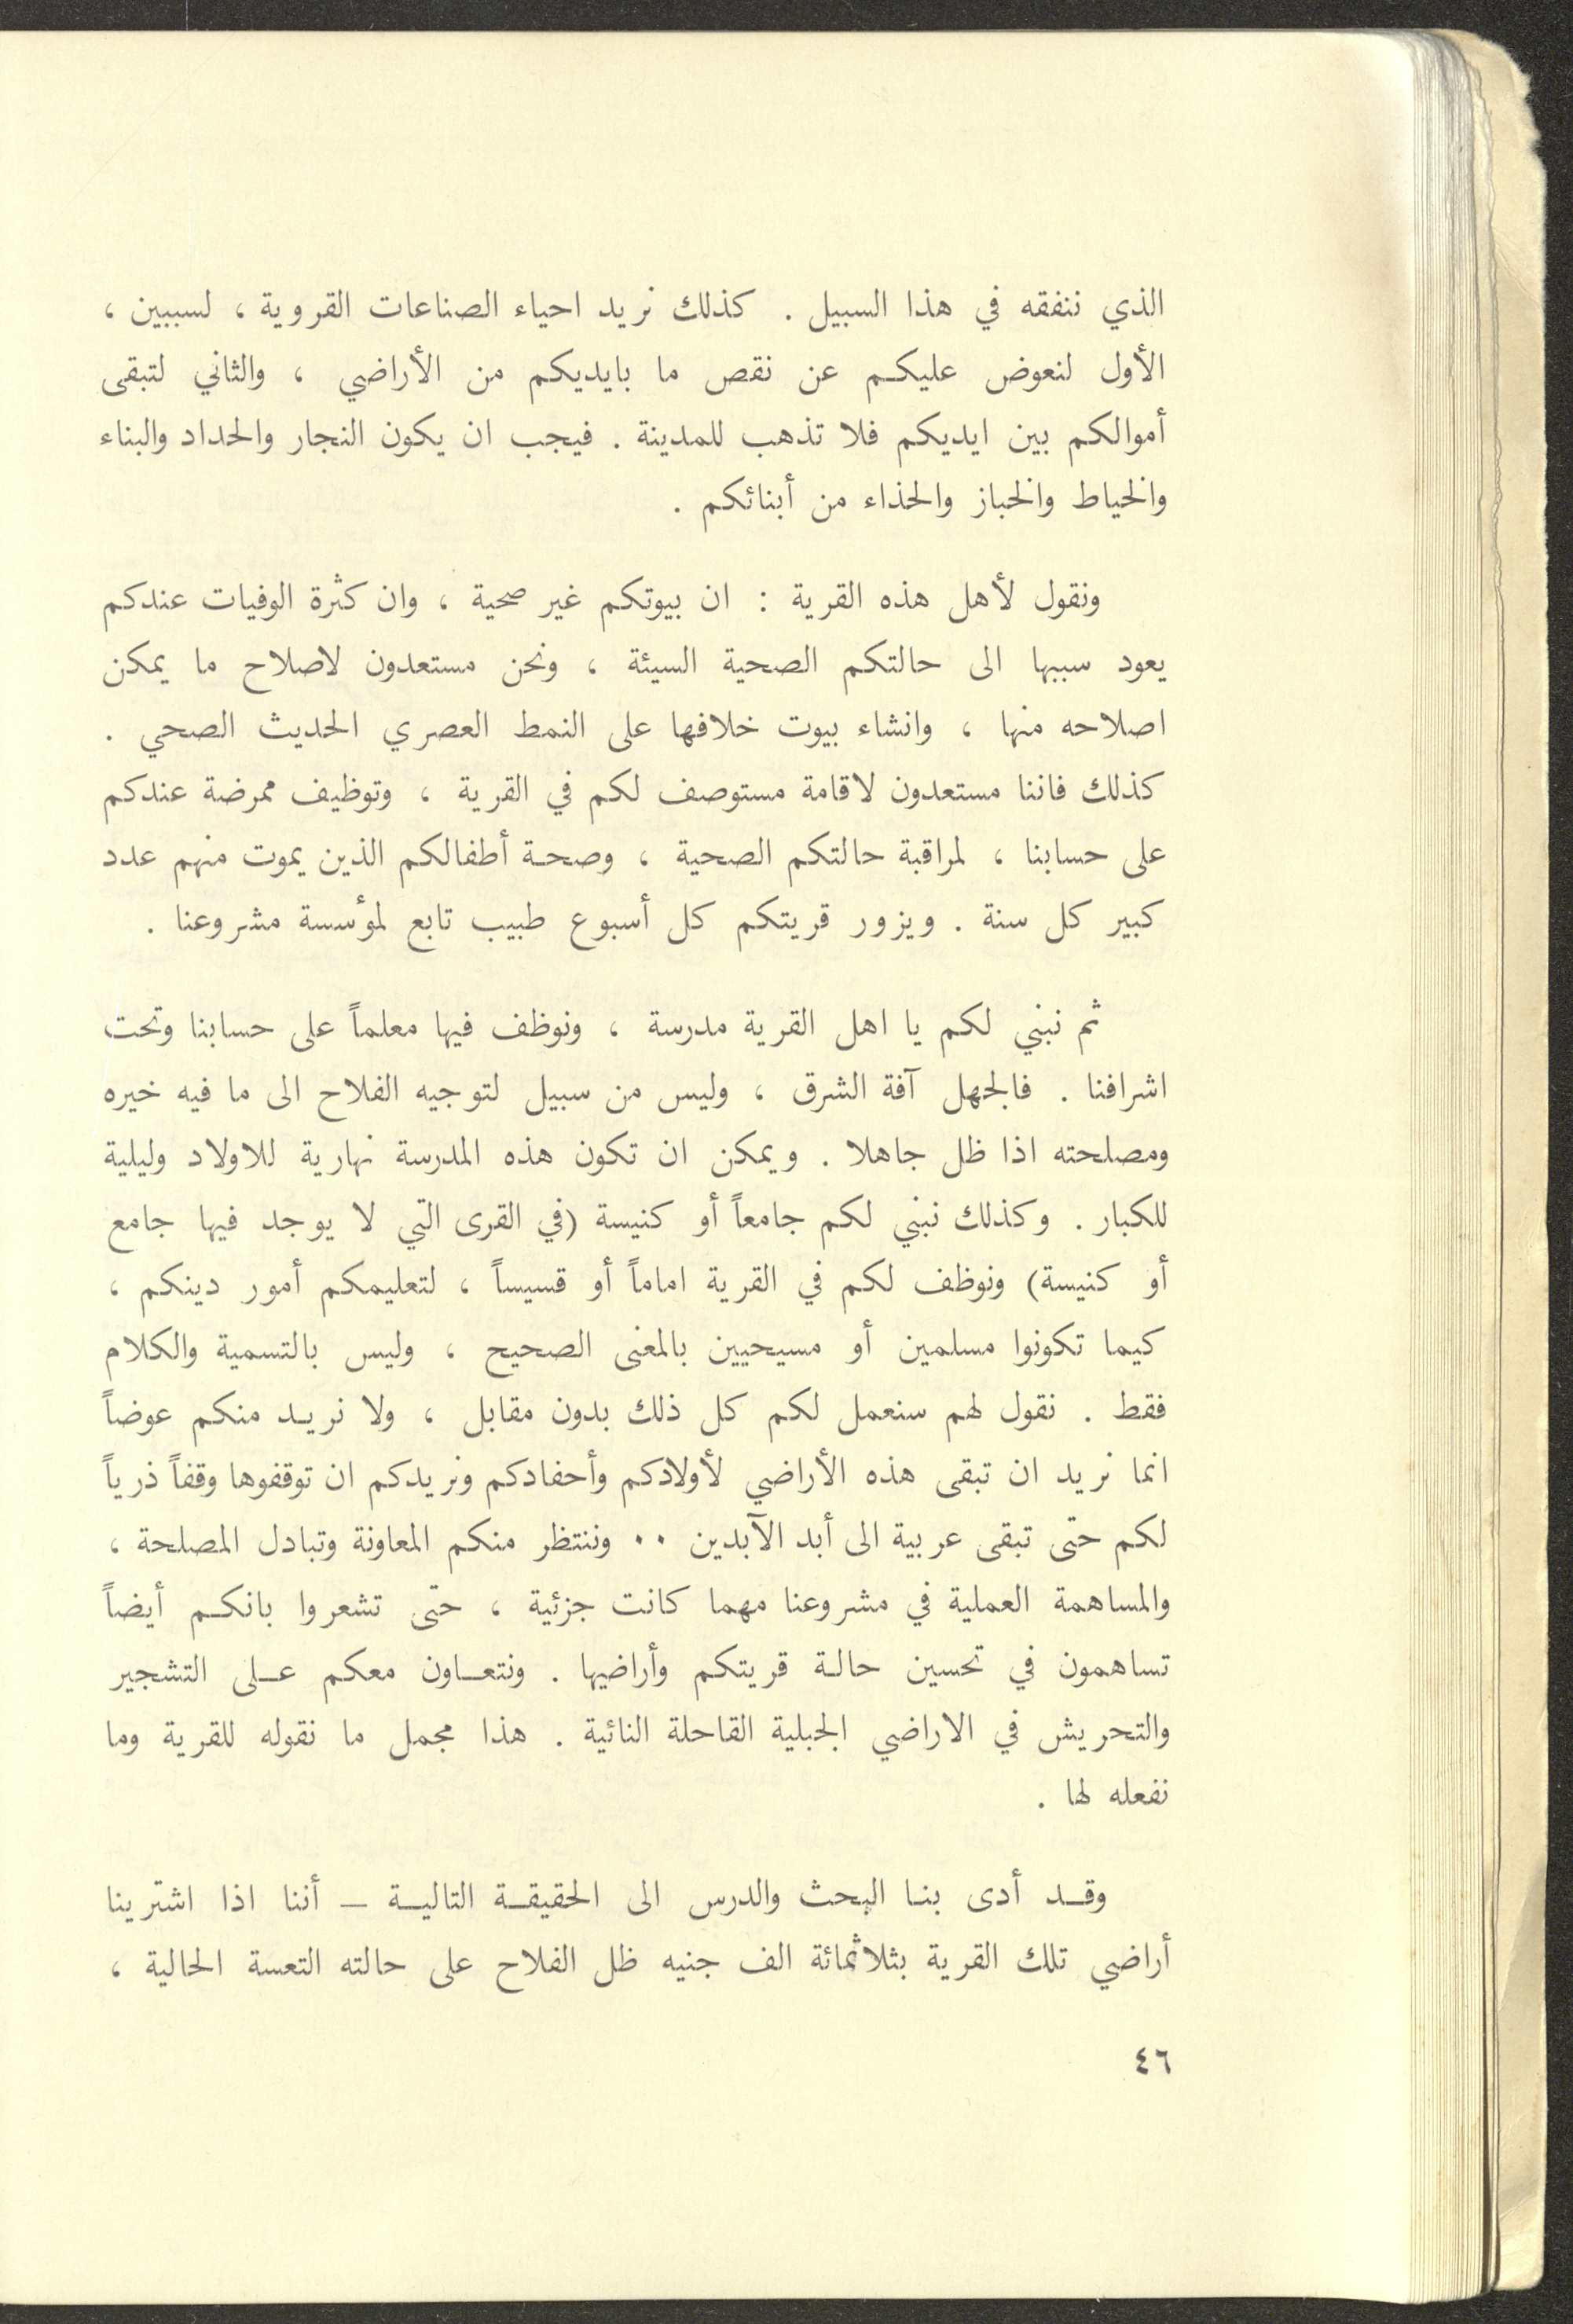 الذي ننفقه في هذا السبيل . كذلك نريد احياء الصناعات القروية ، لسببين ،
الأول لنعوض عليكم عن نقص ما بايديكم من الأراضي ، والثاني لتبقى
أموالكم بين ايديكم فلا تذهب للمدينة . فيجب ان يكون النجار والحداد والبناء
والخياط والخباز والحذاء من أبنائكم .
ونقول لأهل هذه القرية : ان بيوتكم غير صحية ، وان كثرة الوفيات عندكم
يعود سببها الى حالتكم الصحية السيئة ، ونحن مستعدون لاصلاح ما يمكن
اصلاحه منها ، وانشاء بيوت خلافها على النمط العصري الحديث الصحي .
كذلك فاننا مستعدون لاقامة مستوصف لكم في القرية ، وتوظيف ممرضة عندكم
على حسابنا ، لمراقبة حالتكم الصحية ، وصحة أطفالكم الذين يموت منهم عدد
كبير كل سنة . ويزور قريتكم كل أسبوع طبيب تابع لمؤسسة مشروعنا .
ثم نبني لكم يا اهل القرية مدرسة ، ونوظف فيها معلماً على حسابنا وتحت
اشرافنا . فالجهل آفة الشرق ، وليس من سبيل لتوجيه الفلاح الى ما فيه خيره
ومصلحته اذا ظل جاهلا . ويمكن ان تكون هذه المدرسة نهارية للاولاد وليلية
للكبار . وكذلك نبني لكم جامعاً أو كنيسة (في القرى التي لا يوجد فيها جامع
أو كنيسة) ونوظف لكم في القرية اماماً أو قسيساً ، لتعليمكم أمور دينكم ،
كيما تكونوا مسلمين أو مسيحيين بالمعنى الصحيح ، وليس بالتسمية والكلام
فقط . نقول لهم سنعمل لكم كل ذلك بدون مقابل ، ولا نريد منكم عوضاً
انما نريد ان تبقى هذه الأراضي لأولادكم وأحفادكم ونريدكم ان توقفوها وقفاً ذرياً
لكم حتى تبقى عربية الى أبد الآبدين ٠٠ وننتظر منكم المعاونة وتبادل المصلحة ،
والمساهمة العملية في مشروعنا مهما كانت جزئية ، حتى تشعروا بانكم أيضاً
تساهمون في تحسين حالة قريتكم وأراضيها . ونتعاون معكم على التشجير
والتحريش في الاراضي الجبلية القاحلة النائية . هذا مجمل ما نقوله للقرية وما
نفعله لها .
وقد أدى بنا البحث والدرس الى الحقيقة التالية – أننا اذا اشترينا
أراضي تلك القرية بثلاثمائة الف جنيه ظل الفلاح على حالته التعسة الحالية ،
٤٦